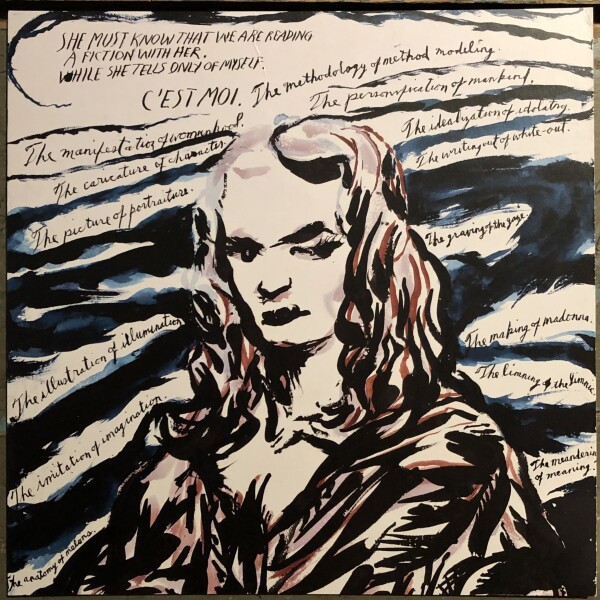 SHE MUST KNOW THAT WE ARE READING
A FICTION WITH HER.
WHILE SHE TELLS ONLY OF MYSELF.
C'EST MOI. The methodology of method modeling.
The personification of mankind.
The idealization of idolatry.
The writing out of white-out.
The manifestation of womanhood.
The caricature of character.
The picture of portraiture.
The graving of the gaze.
The making of madonna.
The illustration of illumination
The limning of the
The imitation of imagination.
The meandering
of meaning.
The anatomy of